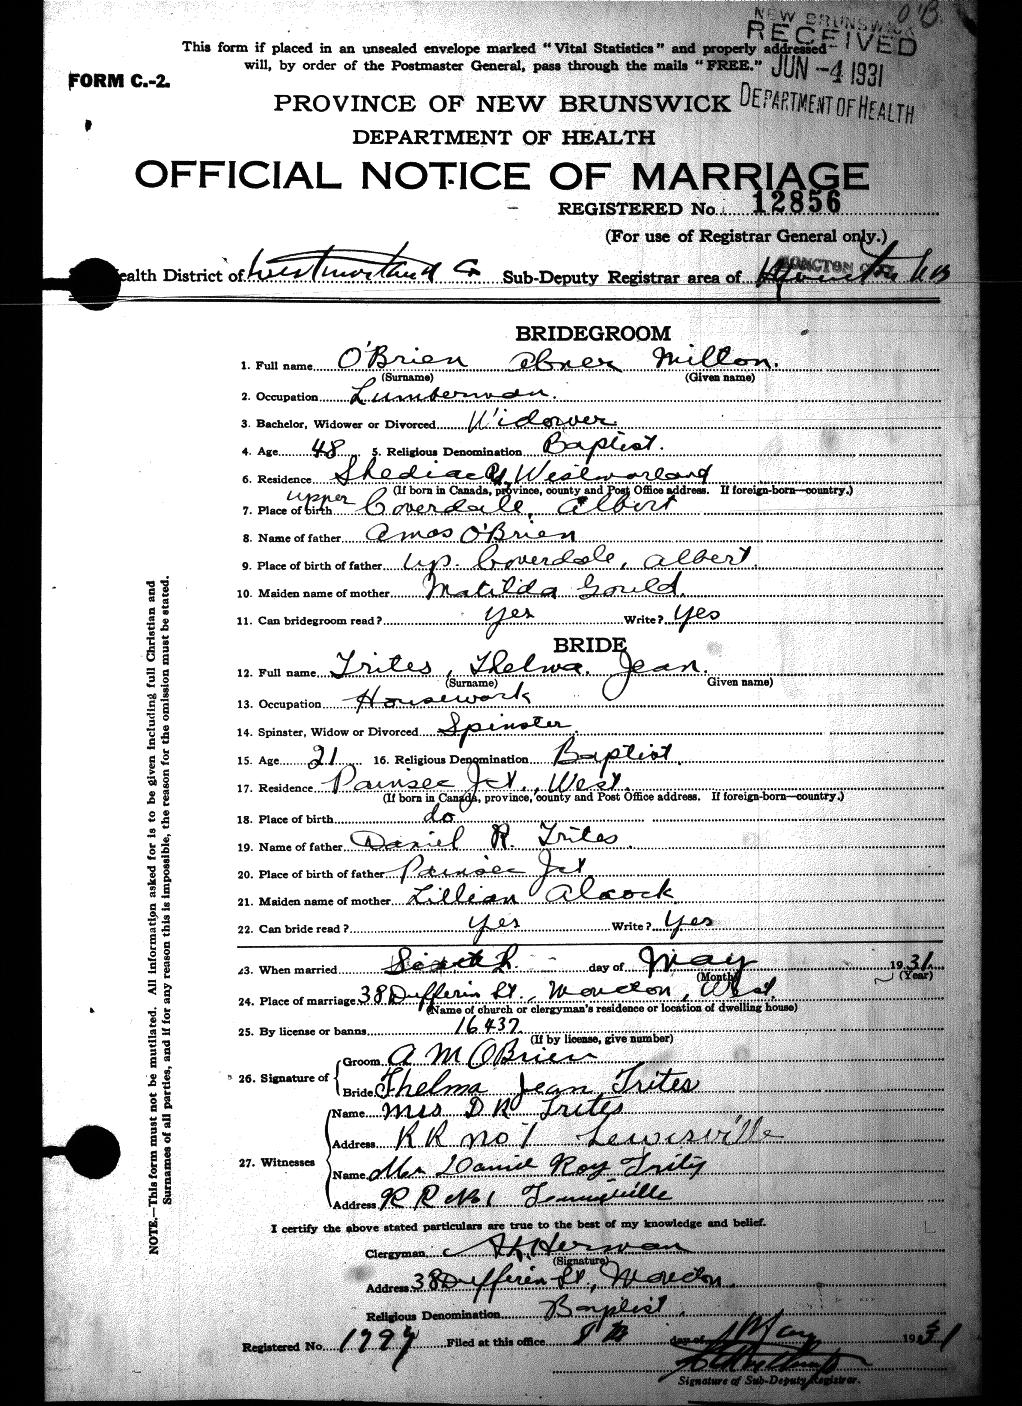 O'B
NEW BRUNSWICK
RECEIVED
JUN -4 1931
DEPARTMENT OF HEALTH
This form if placed in an unsealed envelope marked "Vital Statistics" and properly addressed
will, by order of the Postmaster General, pass through the mails "FREE."
FORM C.-2.
PROVINCE OF NEW BRUNSWICK
DEPARTMENT OF HEALTH
OFFICIAL NOTICE OF MARRIAGE
REGISTERED No. 12856
(For use of Registrar General only.)
ealth District of Westmorland Co Sub-Deputy Registrar area of MONCTON Moncton N B
BRIDEGROOM
1. Full name O'Brien Abner Milton.
(Surname) (Given name)
2. Occupation Lumberman.
3. Bachelor, Widower or Divorced Widower
4. Age 48 5. Religious Denomination Baptist.
6. Residence Shediac Westmorland
(If born in Canada, province, county and Post Office address. If foreign-born—country.)
7. Place of birth upper Coverdale, Albert
8. Name of father Amos O'Brien
9. Place of birth of father Up. Coverdale, Albert.
10. Maiden name of mother Matilda Gould.
11. Can bridegroom read? Yes Write? Yes
BRIDE
12. Full name Trites, Thelma. Jean.
(Surname) Given name)
13. Occupation Housework
14. Spinster, Widow or Divorced Spinster.
15. Age 21 16. Religious Denomination Baptist.
17. Residence Painsec Jct., West.
(If born in Canada, province, county and Post Office address. If foreign-born—country.)
18. Place of birth do
19. Name of father Daniel R. Trites.
20. Place of birth of father Painsec Jct
21. Maiden name of mother Lillian Alcock
22. Can bride read? Yes Write? Yes
23. When married Sixth day of May 1931.
(Month) (Year)
24. Place of marriage 38 Dufferin St., Moncton, West.
(Name of church or clergyman's residence or location of dwelling house)
25. By license or banns 16437
(If by license, give number)
26. Signature of Groom A M O'Brien
Bride Thelma Jean Trites
27. Witnesses Name Mrs D R Trites
Address R R No 1 Lewisville
Name Mr Daniel Roy Trites
Address R R No 1 Lewisville
I certify the above stated particulars are true to the best of my knowledge and belief.
Clergyman Herman
(Signature)
Address 38 Dufferin St., Moncton.
Religious Denomination Baptist.
Registered No. 1797 Filed at this office 8 th day of May 1931
Signature of Sub-Deputy Registrar.
NOTE.—This form must not be mutilated. All information asked for is to be given including full Christian and
Surnames of all parties, and if for any reason this is impossible, the reason for the omission must be stated.